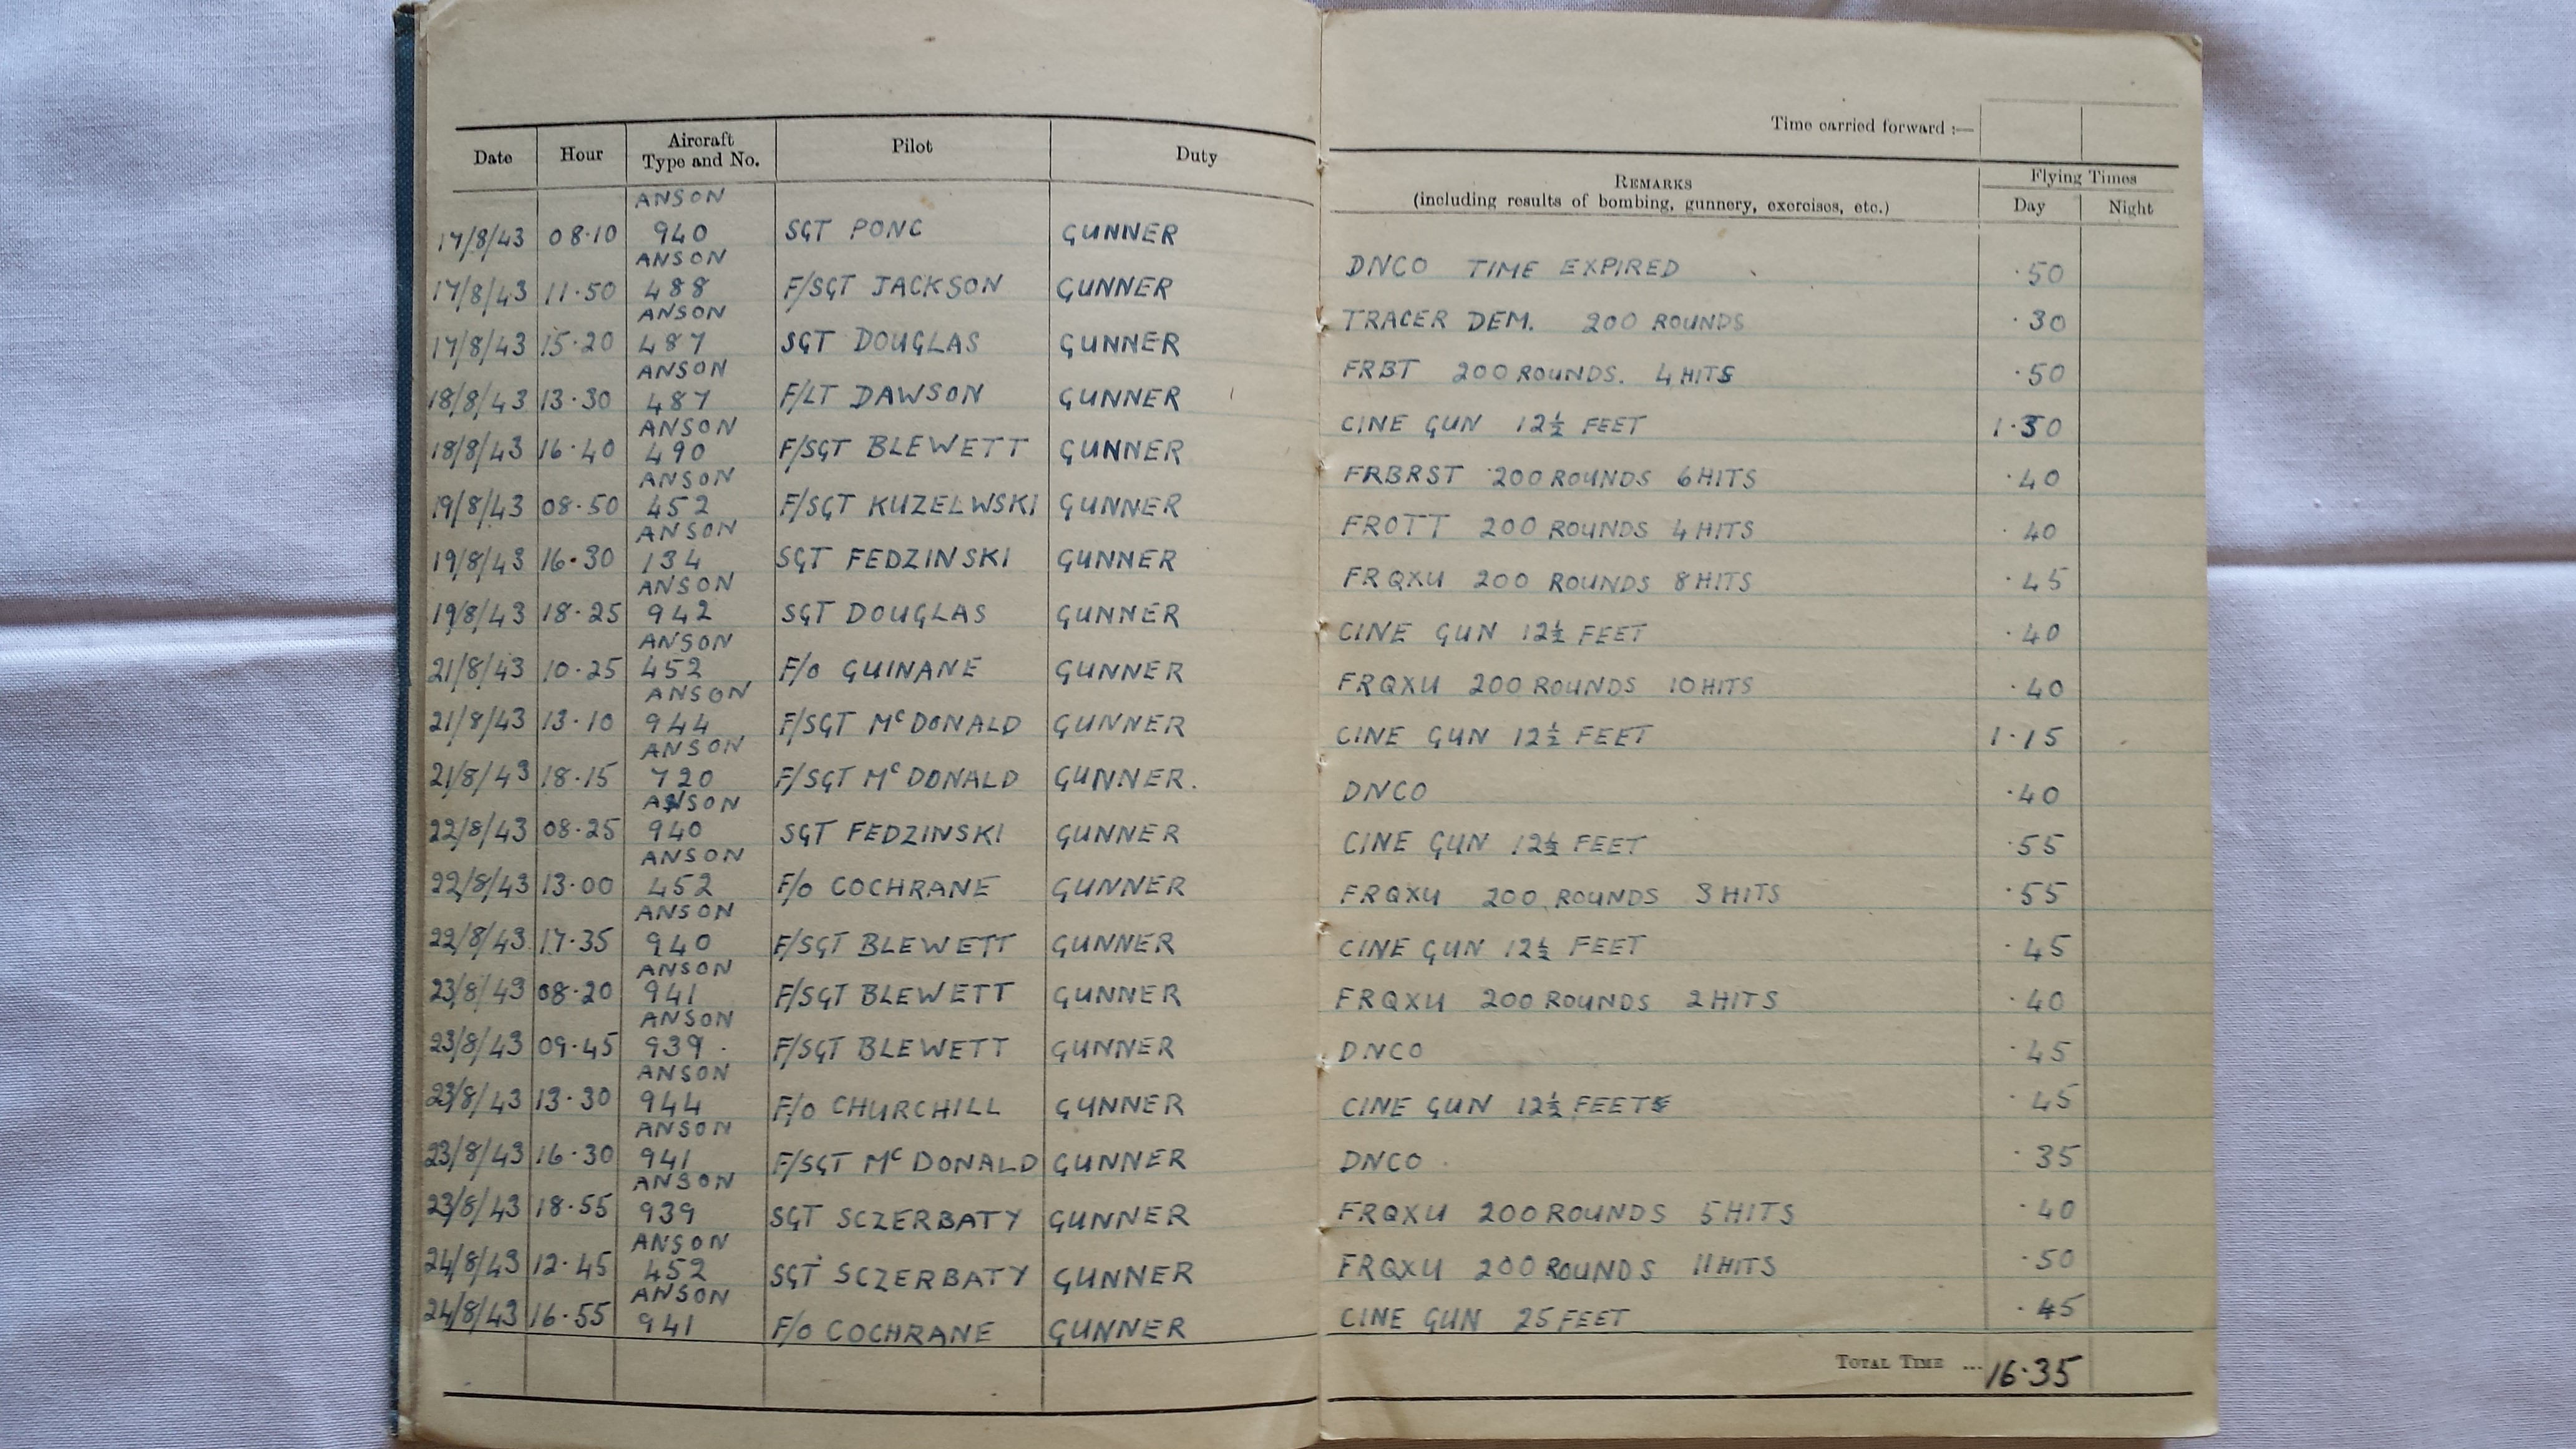 Time carried forward :—
Date Hour Aircraft Type and No. Pilot Duty REMARKS (including results of bombing, gunnery, exercises, etc.) Flying Times Day Night
ANSON
17/8/43 08·10 940 SGT PONC GUNNER DNCO TIME EXPIRED ·50
ANSON
17/8/43 11·50 488 F/SGT JACKSON GUNNER TRACER DEM. 200 ROUNDS ·30
ANSON
17/8/43 15·20 487 SGT DOUGLAS GUNNER FRBT 200 ROUNDS. 4 HITS ·50
ANSON
18/8/43 13·30 487 F/LT DAWSON GUNNER CINE GUN 12½ FEET 1·30
ANSON
18/8/43 16·40 490 F/SGT BLEWETT GUNNER FRBRST 200 ROUNDS 6 HITS ·40
ANSON
19/8/43 08·50 452 F/SGT KUZELWSKI GUNNER FROTT 200 ROUNDS 4 HITS ·40
ANSON
19/8/43 16·30 134 SGT FEDZINSKI GUNNER FRQXU 200 ROUNDS 8 HITS ·45
ANSON
19/8/43 18·25 942 SGT DOUGLAS GUNNER CINE GUN 12½ FEET ·40
ANSON
21/8/43 10·25 452 F/O GUINANE GUNNER FRQXU 200 ROUNDS 10 HITS ·40
ANSON
21/8/43 13·10 944 F/SGT McDONALD GUNNER CINE GUN 12½ FEET 1·15
ANSON
21/8/43 18·15 720 F/SGT McDONALD GUNNER. DNCO ·40
ANSON
22/8/43 08·25 940 SGT FEDZINSKI GUNNER CINE GUN 12½ FEET ·55
ANSON
22/8/43 13·00 452 F/O COCHRANE GUNNER FRQXU 200 ROUNDS 3 HITS ·55
ANSON
22/8/43 17·35 940 F/SGT BLEWETT GUNNER CINE GUN 12½ FEET ·45
ANSON
23/8/43 08·20 941 F/SGT BLEWETT GUNNER FRQXU 200 ROUNDS 2 HITS ·40
ANSON
23/8/43 09·45 939 F/SGT BLEWETT GUNNER DNCO ·45
ANSON
23/8/43 13·30 944 F/O CHURCHILL GUNNER CINE GUN 12½ FEET ·45
ANSON
23/8/43 16·30 941 F/SGT McDONALD GUNNER DNCO ·35
ANSON
23/8/43 18·55 939 SGT SCZERBATY GUNNER FRQXU 200 ROUNDS 5 HITS ·40
ANSON
24/8/43 12·45 452 SGT SCZERBATY GUNNER FRQXU 200 ROUNDS 11 HITS ·50
ANSON
24/8/43 16·55 941 F/O COCHRANE GUNNER CINE GUN 25 FEET ·45
TOTAL TIME ... 16·35